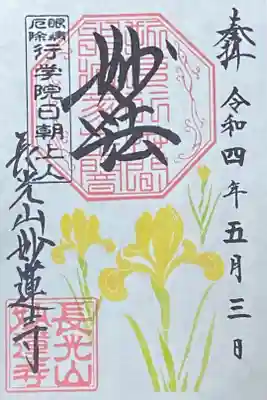 奉拝
令和四年五月三日
妙法
眼病
厄除
行学院日朝上人
長光山妙蓮寺
長光山
妙蓮寺